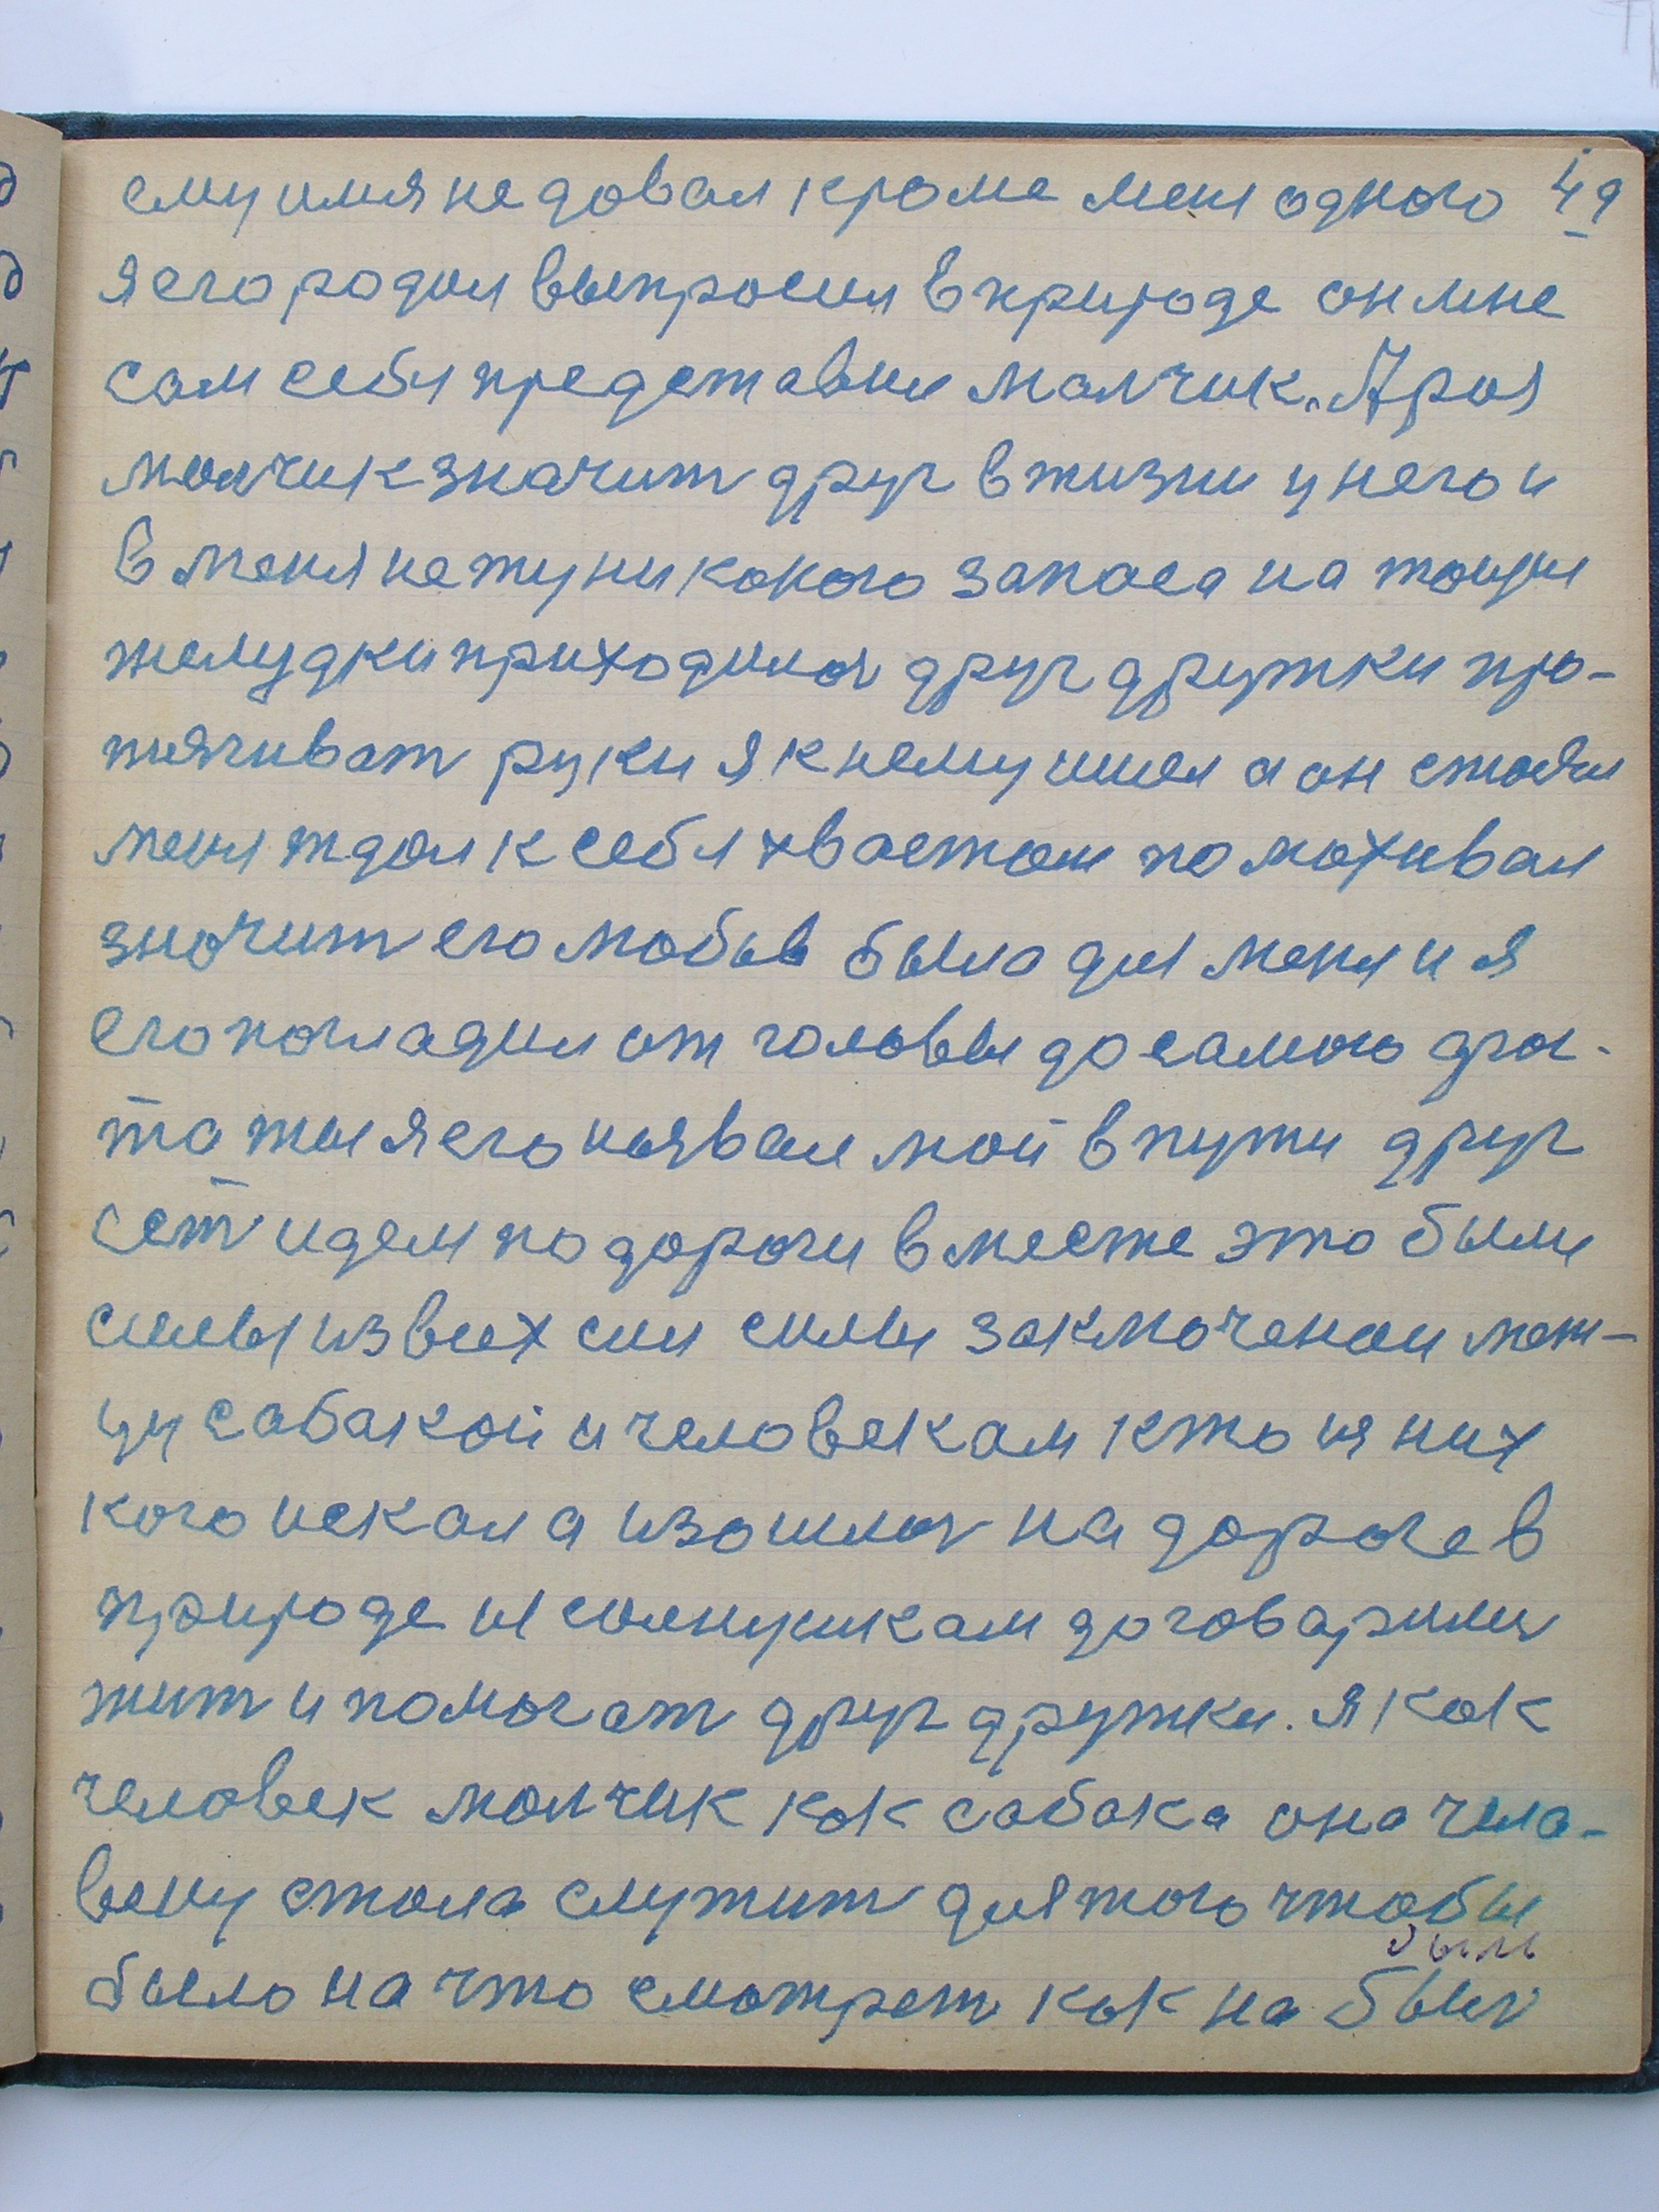 ему имя не довал кроме меня одного 49
я его родил выпросил в природе он мне
сам себя представил малчик. А раз
малчик значит друг в жизни у него и
в меня нету никокого запаса на тощии
желудки приходился друг дружки про-
тягиват руки я к нему шел а он стоял
меня ждал к себя хвастом помохивал
значит его любовь была для меня и я
его погладил от головы до самого
та ты я его назвал мой в пути друг
идем по дороги вместе это были
силы из всех сил силы заключеная меж-
ду сабакой и человекам кто из них
кого искал а изошлис на дороге в
природе и солнушкам договарилис
жит и помогат друг дружки. я как
человек малчик как сабака она чила-
веку стала служит для того чтобы
быль
было на что смотрет как на быль